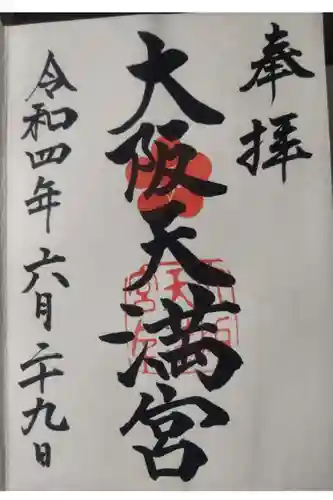 奉拝
大阪天満宮
令和四年六月二十九日